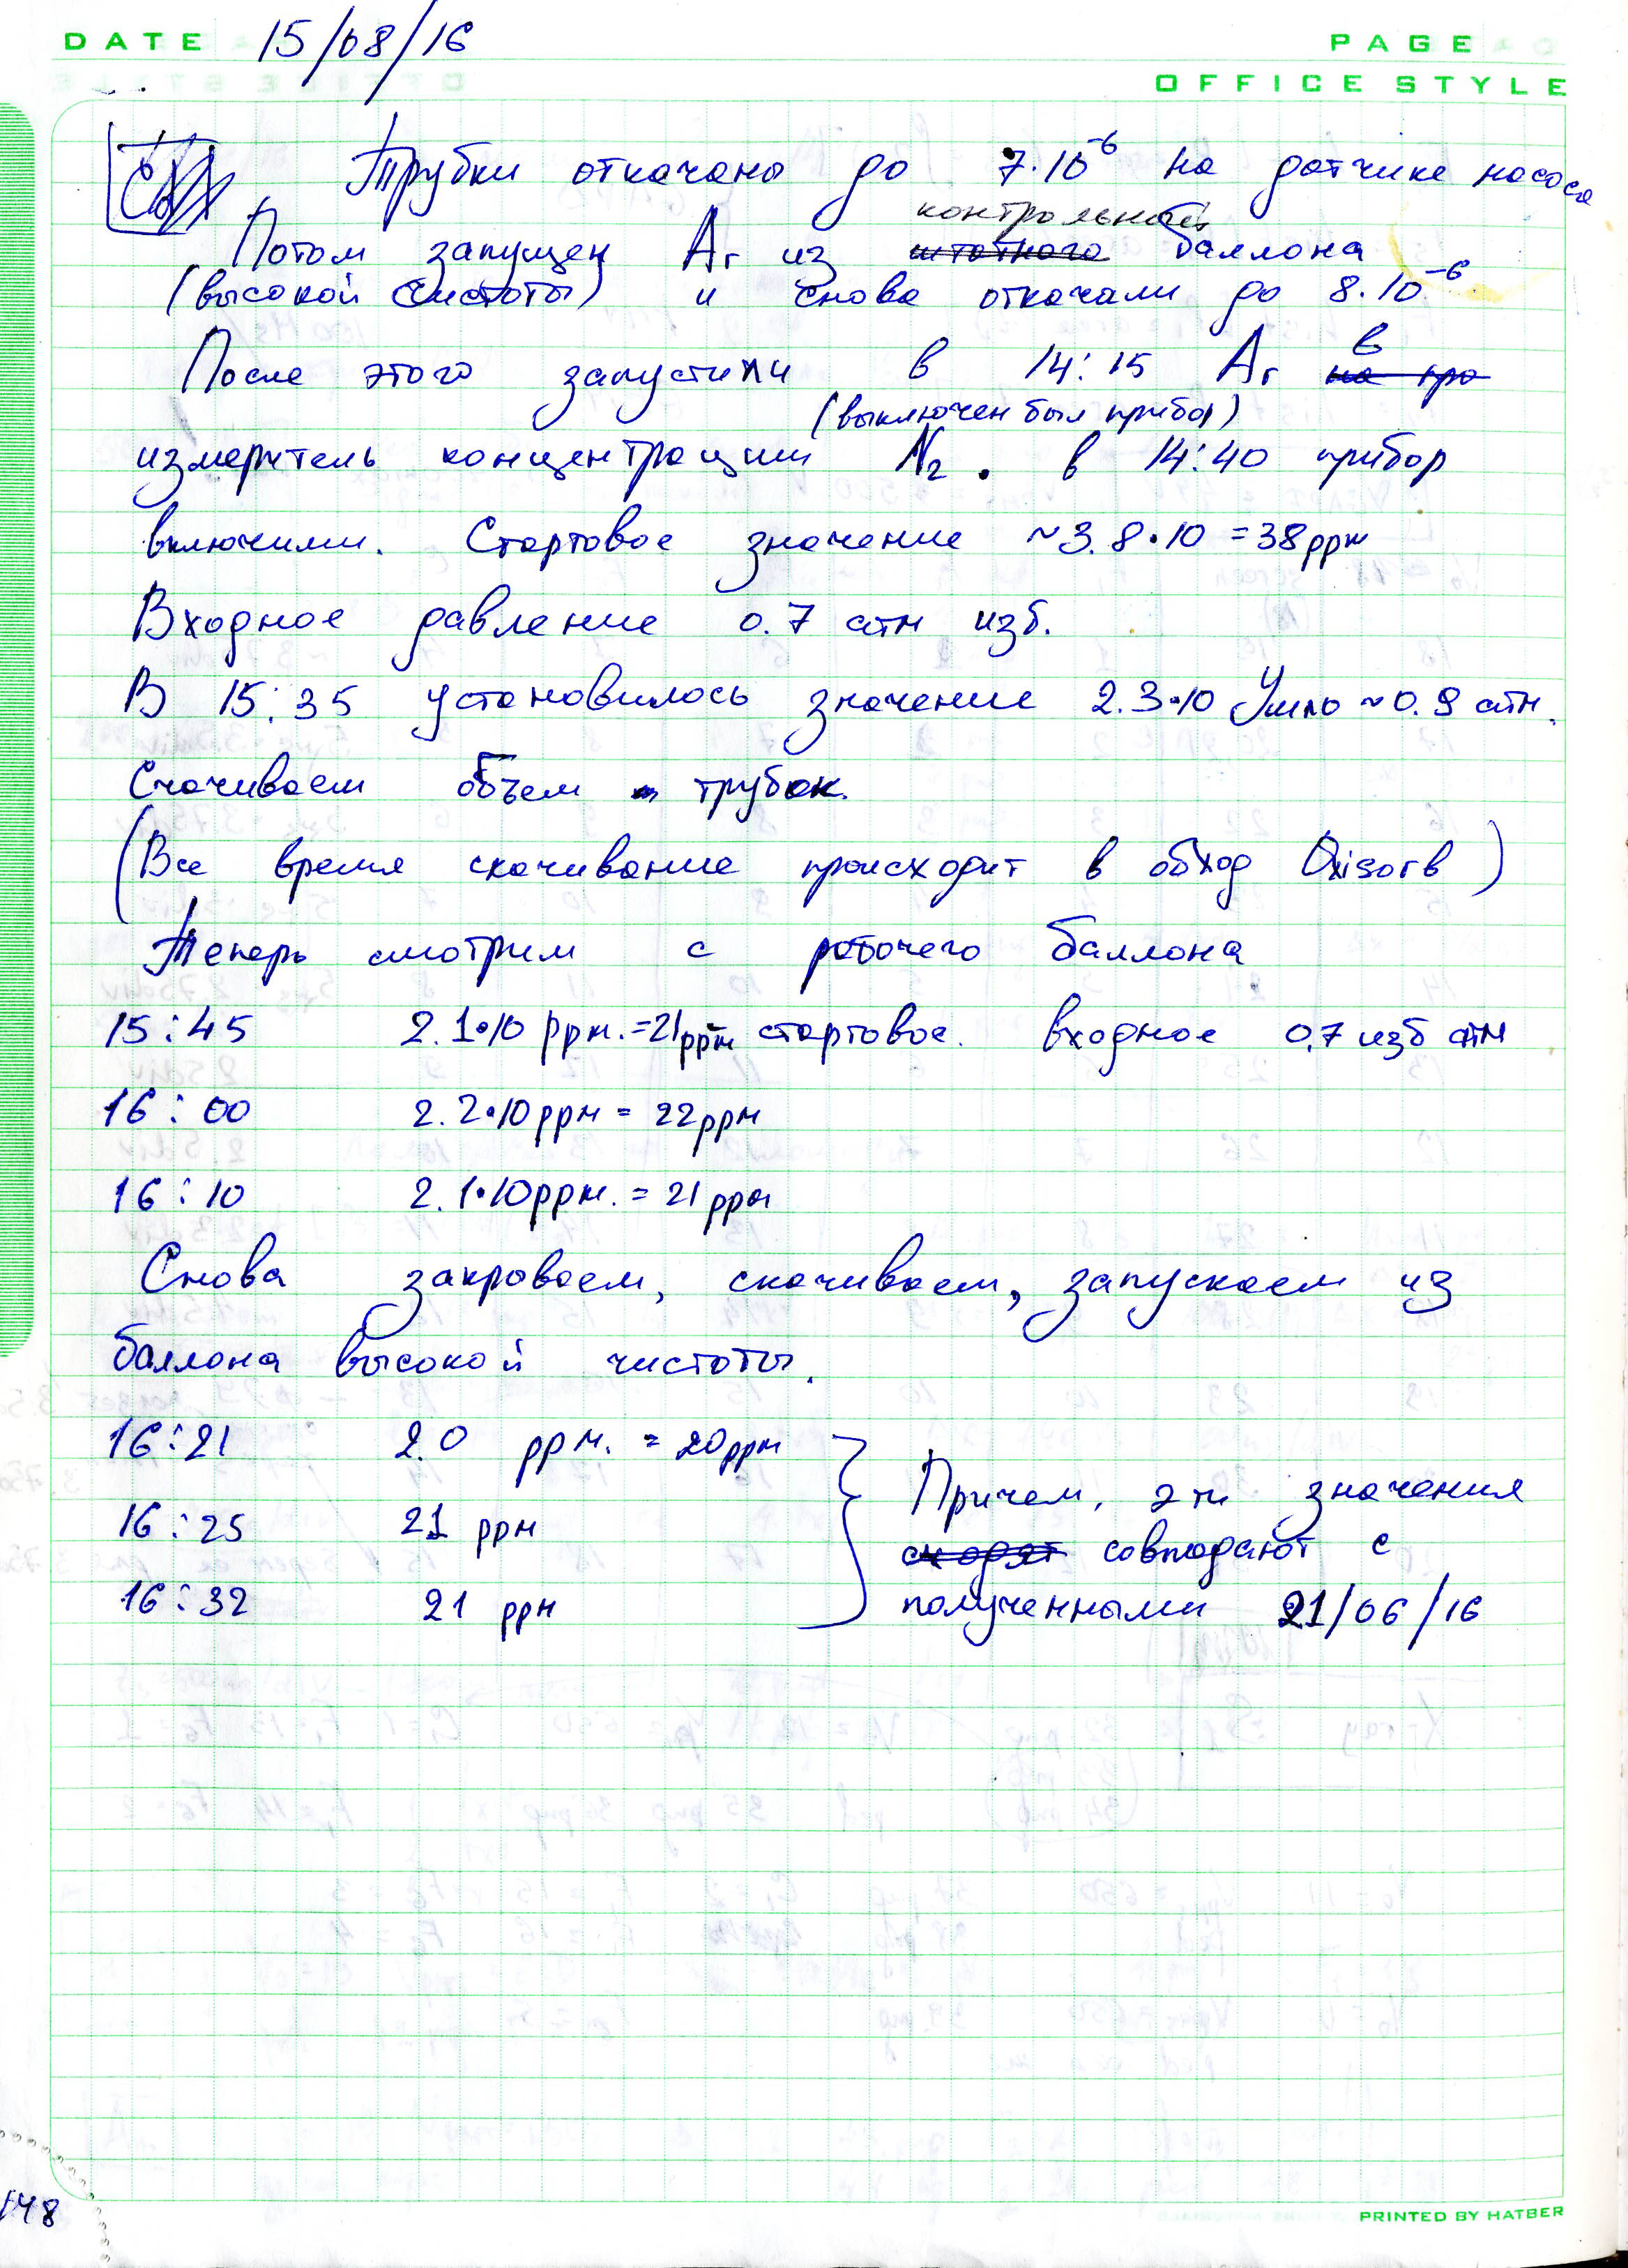 DATE 15/08/16 PAGE
OFFICE STYLE
Трубки откачаны до 7·10⁻⁶ на датчике насоса
контрольный
Потом запущен Ar из штатного баллона
(высокой чистоты) и снова откачали до 8·10⁻⁶
После этого запустили в 14:15 Ar в
(выключен был прибор)
измеритель концентрации N₂. в 14:40 прибор
включили. Стартовое значение ~3.8·10 = 38 ppm
Входное давление 0.7 атм изб.
В 15:35 установилось значение 2.3·10 Ушло ~0.9 атм.
Скачиваем объем трубок.
(Все время скачивание происходит в обход Oxisorb)
Теперь смотрим с рабочего баллона
15:45 2.1·10 ppm. = 21 ppm стартовое. входное 0,7 изб атм
16:00 2.2·10 ppm = 22 ppm
16:10 2.1·10 ppm. = 21 ppm
Снова закрываем, скачиваем, запускаем из
баллона высокой чистоты.
16:21 2.0 ppm. = 20 ppm
16:25 21 ppm
16:32 21 ppm
Причем, эти значения
сходят совпадают с
полученными 21/06/16
148
PRINTED BY HATBER